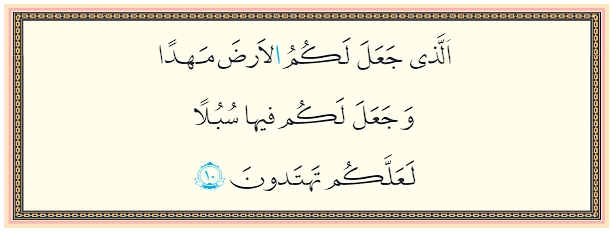 اَلَّذی جَعَلَ لَكُمُ الاَرضَ مَهدًا
وَ جَعَلَ لَكُم فیها سُبُلًا
لَعَلَّكُم تَهتَدونَ ۱۰